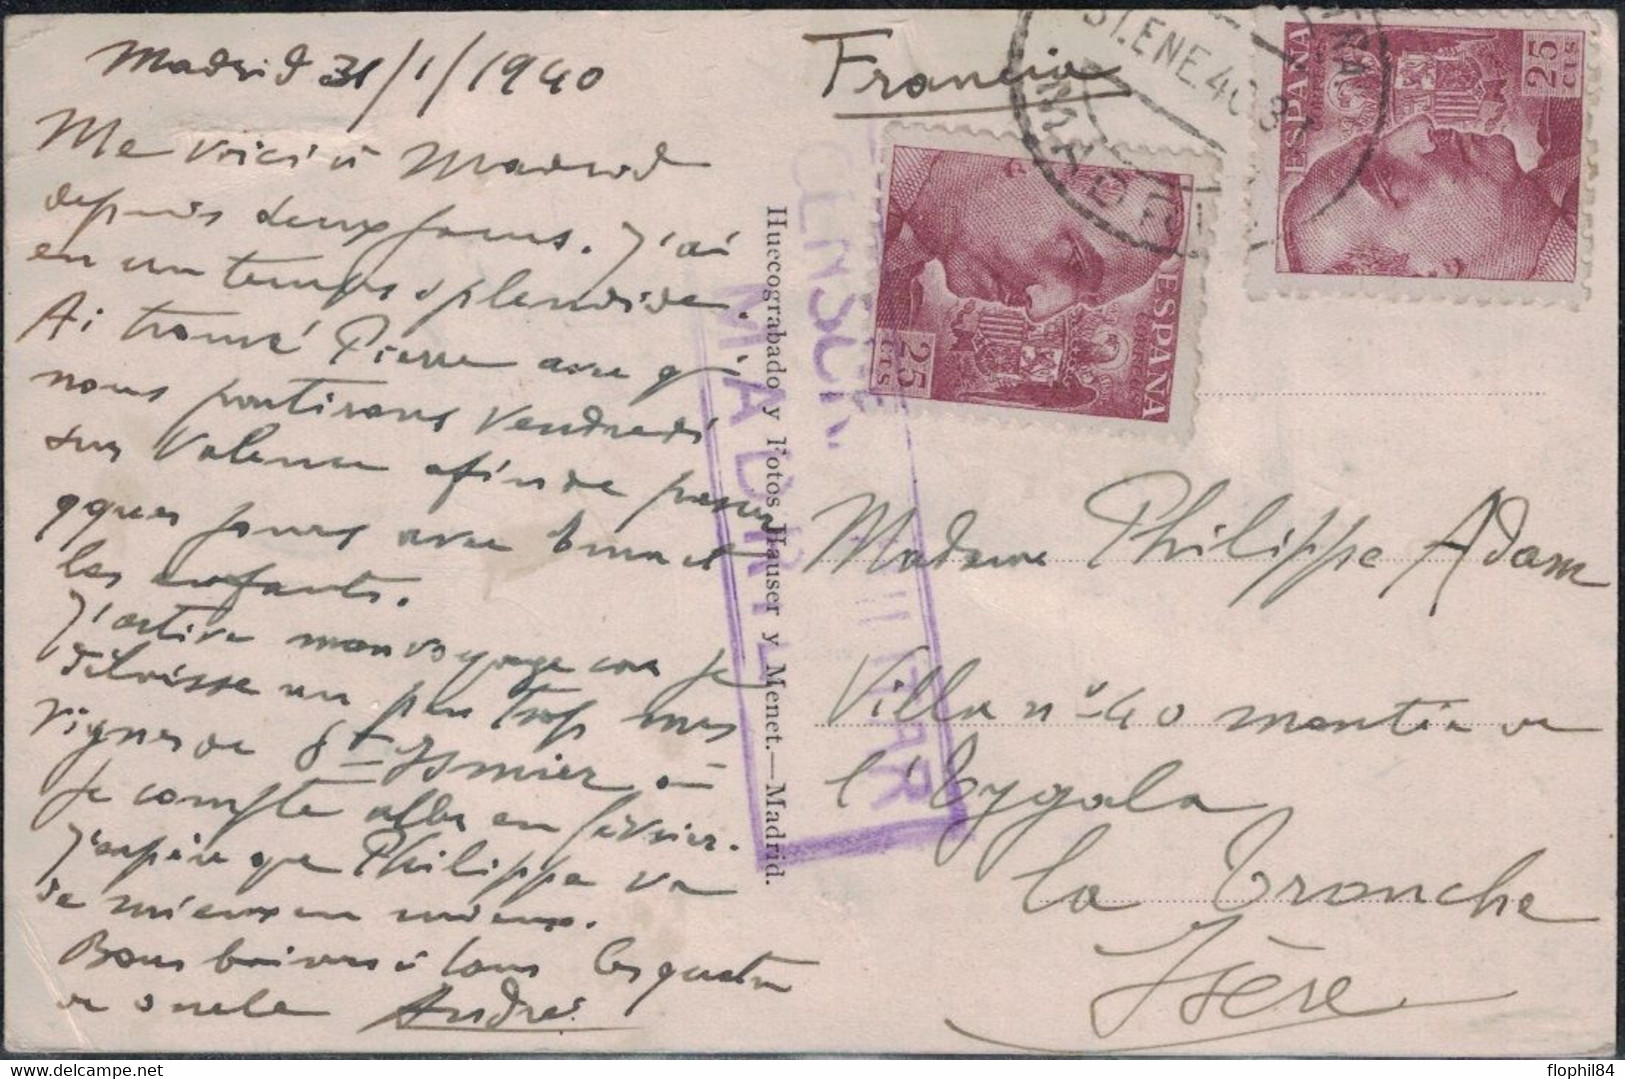 Madrid 31/1/1940
Me voici à Madrid
depuis deux jours. J'ai
eu un temps splendide.
Ai trouvé Pierre avec qui
nous partirons Vendredi
sur Valence afin de passer
qques jours avec et
les enfants.
J'active mon voyage car je
un peu trop mes
vignes de St- où
je compte aller en février.
J'espère que Philippe va
de mieux en mieux.
Bons baisers à tous les quatre
de André
Francia
31.ENE.40
MADRID
ESPAÑA
25
CTS
ESPAÑA
CORREOS
25
CTS
CENSURA MILITAR
MADRID
Huecograbado y Fotos Hauser y Menet.—Madrid.
Madame Philippe Adam
Villa nº 40 montée de
l'Eygala
La Tronche
Isère
flophil84